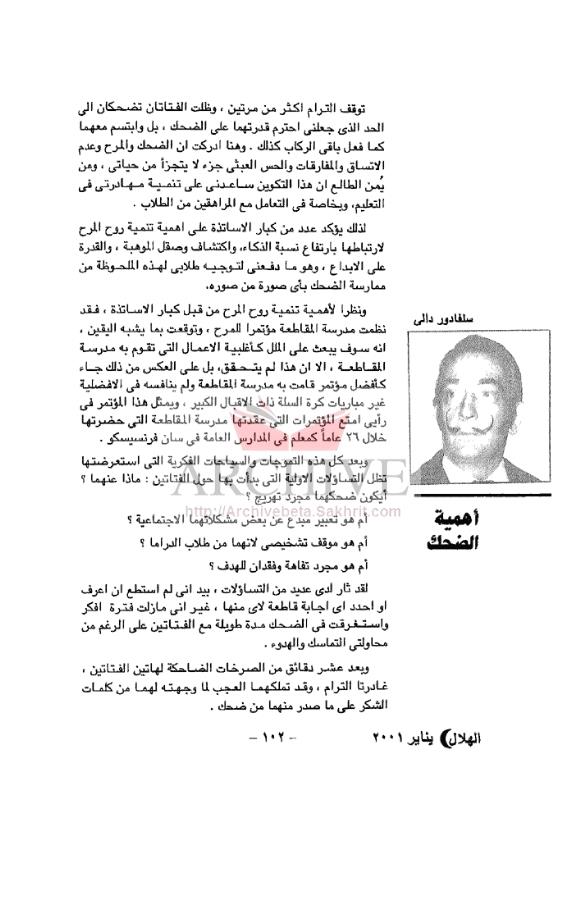 توقف الترام اكثر من مرتين ، وظلت الفتاتان تضحكان الى
الحد الذى جعلنى احترم قدرتهما على الضحك ، بل وابتسم معهما
كما فعل باقى الركاب كذلك . وهنا ادركت ان الضحك والمرح وعدم
الاتساق والمفارقات والحس العبثى جزء لا يتجزأ من حياتى ، ومن
يُمن الطالع ان هذا التكوين ساعدنى على تنمية مهادرتى فى
التعليم، وبخاصة فى التعامل مع المراهقين من الطلاب .
لذلك يؤكد عدد من كبار الاساتذة على اهمية تنمية روح المرح
لارتباطها بارتفاع نسبة الذكاء، واكتشاف وصقل الموهبة ، والقدرة
على الابداع ، وهو ما دفعنى لتوجيه طلابى لهذه الملحوظة من
ممارسة الضحك بأى صورة من صوره.
ونظرا لأهمية تنمية روح المرح من قبل كبار الاساتذة ، فقد
نظمت مدرسة المقاطعة مؤتمرا للمرح ، وتوقعت بما يشبه اليقين ،
انه سوف يبعث على الملل كأغلبية الاعمال التى تقوم به مدرسة
المقاطعة ، الا ان هذا لم يتحقق، بل على العكس من ذلك جاء
كأفضل مؤتمر قامت به مدرسة المقاطعة ولم ينافسه فى الافضلية
غير مباريات كرة السلة ذات الاقبال الكبير ، ويمثل هذا المؤتمر فى
رأيى امتع المؤتمرات التى عقدتها مدرسة المقاطعة التى حضرتها
خلال ٢٦ عاماً كمعلم فى المدارس العامة فى سان فرنسيسكو .
وبعد كل هذه التموجات والسياحات الفكرية التى استعرضتها
تظل التساؤلات الاولية التى بدأت بها حول الفتاتين : ماذا عنهما ؟
أيكون ضحكهما مجرد تهريج ؟
أم هو تعبير مبدع عن بعض مشكلاتهما الاجتماعية ؟
أم هو موقف تشخيصى لانهما من طلاب الدراما ؟
أم هو مجرد تفاهة وفقدان للهدف ؟
لقد ثار لدى عديد من التساؤلات ، بيد انى لم استطع ان اعرف
او احدد اى اجابة قاطعة لاى منها ، غير انى مازلت فترة افكر
واستغرقت فى الضحك مدة طويلة مع الفتاتين على الرغم من
محاولتى التماسك والهدوء .
وبعد عشر دقائق من الصرخات الضاحكة لهاتين الفتاتين ،
غادرتا الترام ، وقد تملكهما العجب لما وجهته لهما من كلمات
الشكر على ما صدر منهما من ضحك .
سلفادور دالى
أهمية
الضحك
ARCHIVE
http://Archivebeta.Sakhrit.com
الهلال يناير ٢٠٠١
– ١٠٢ –